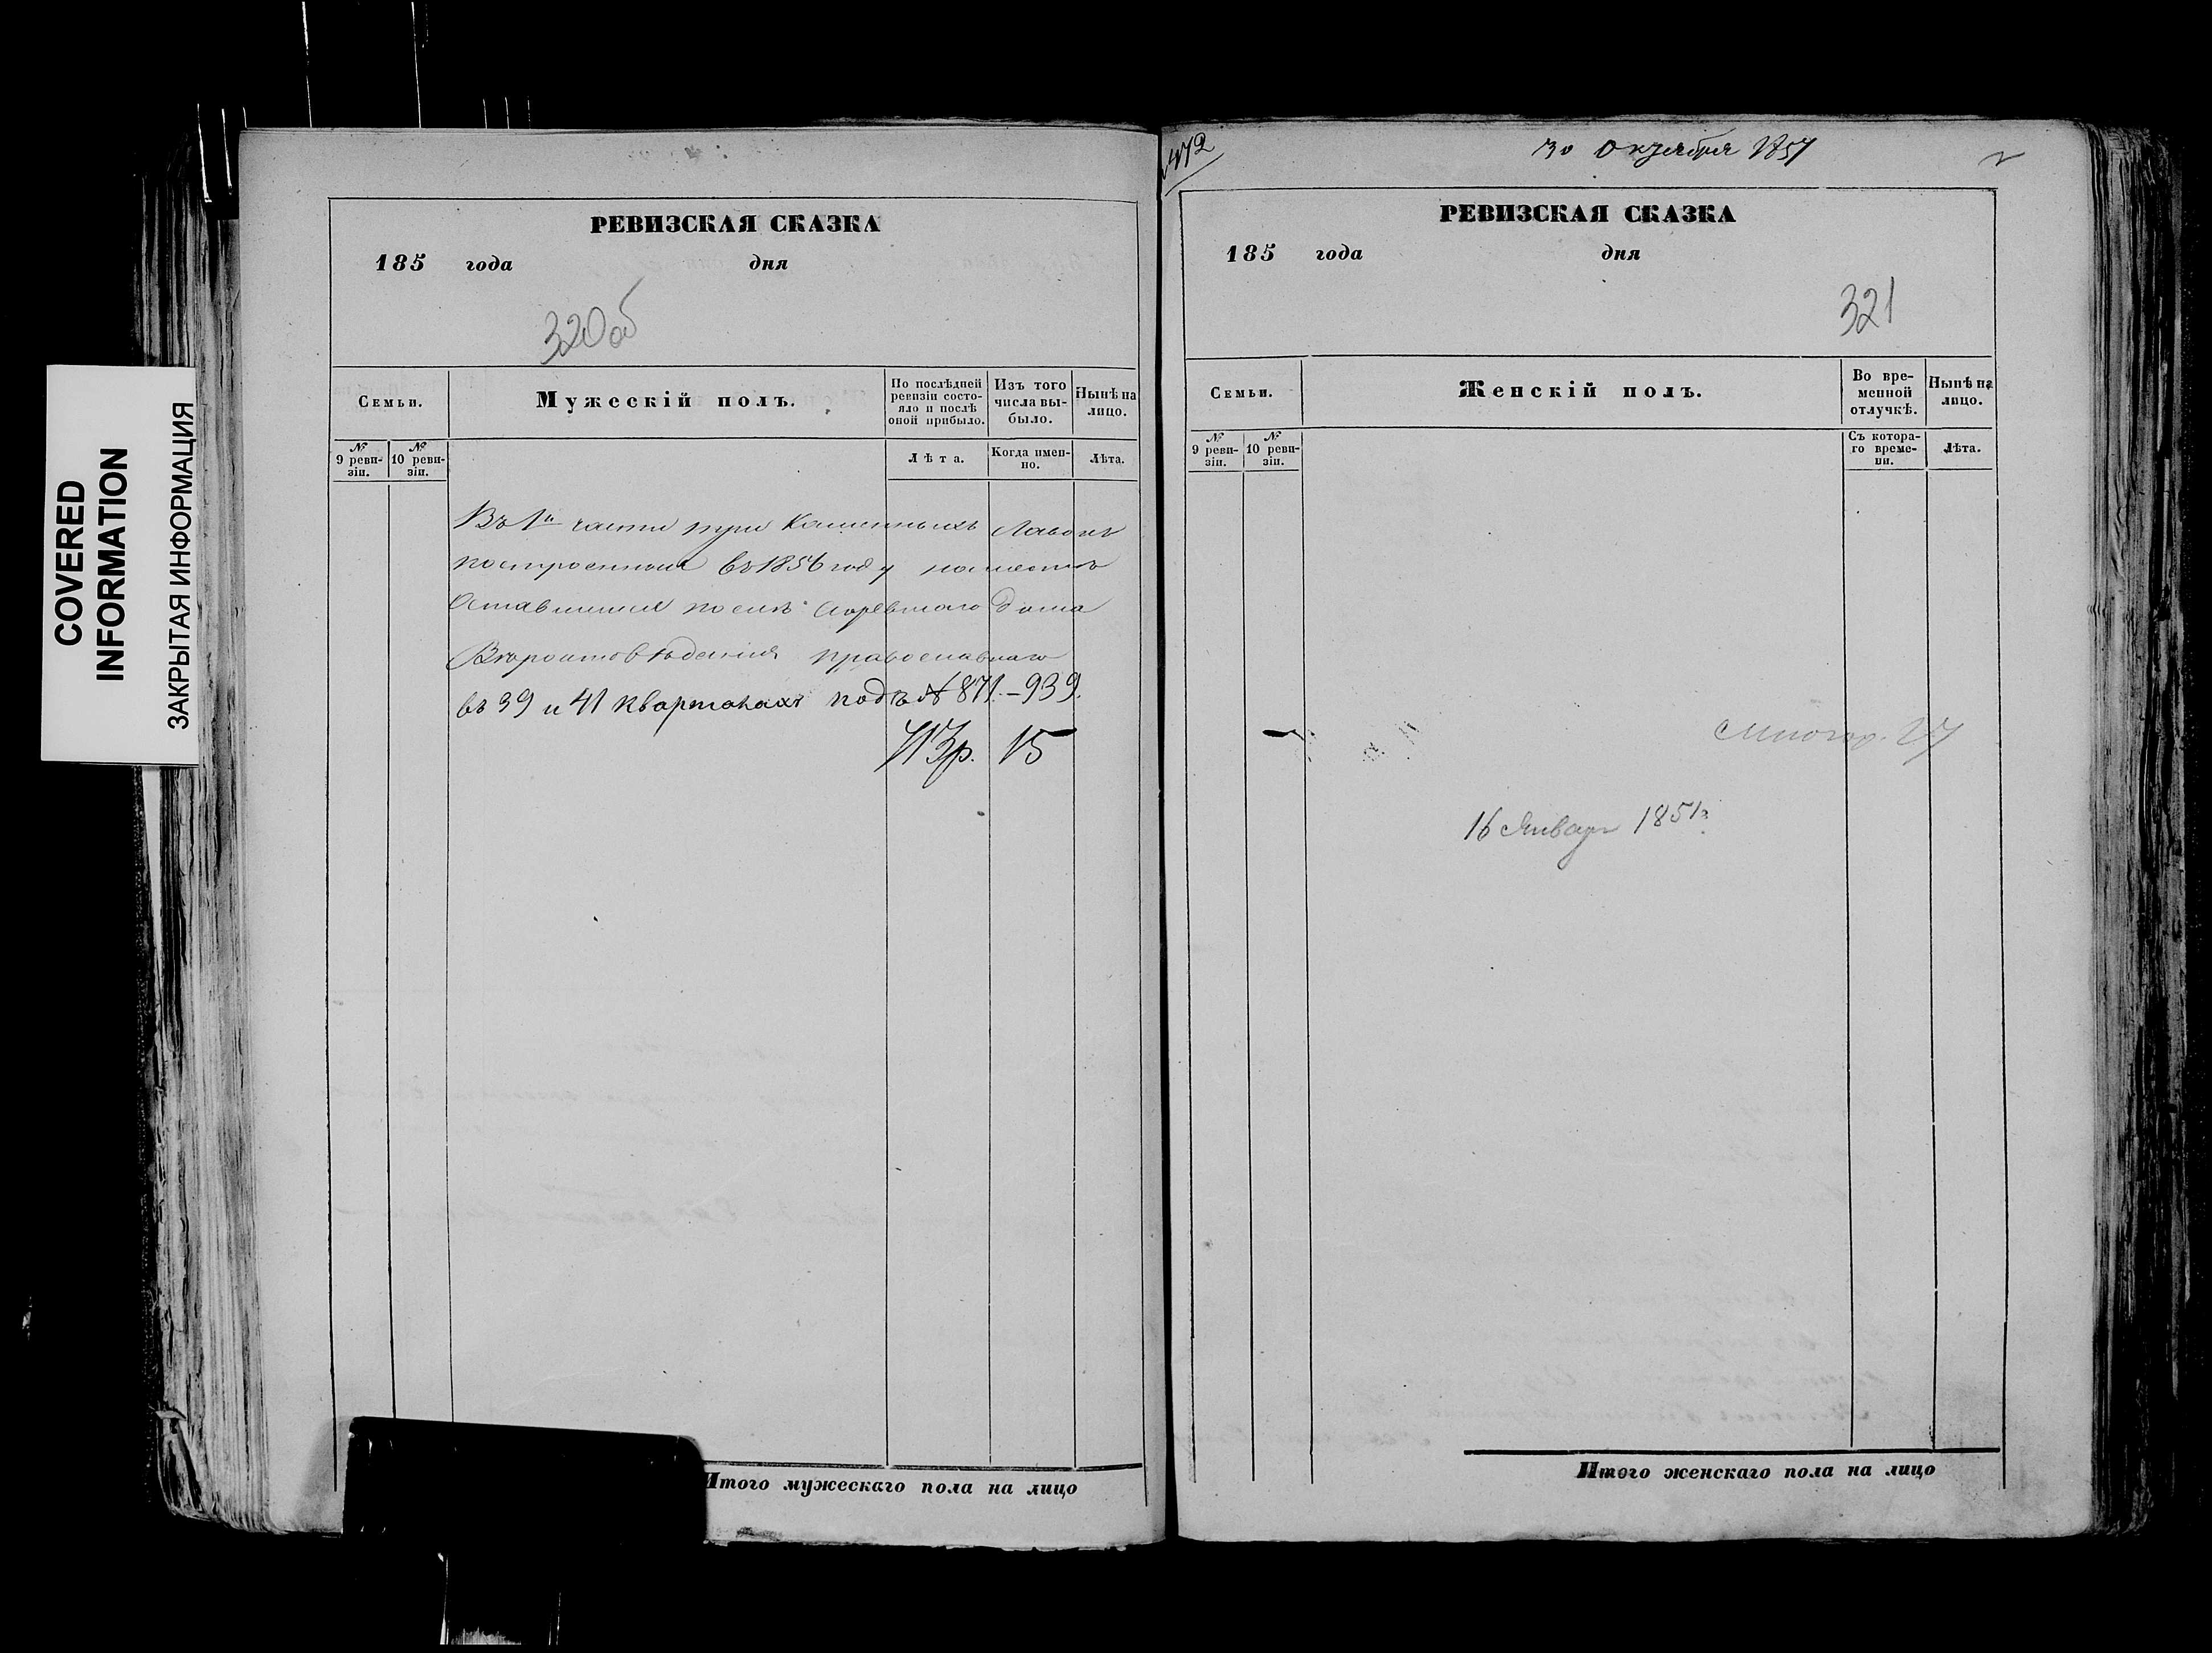 COVERED
INFORMATION
ЗАКРЫТАЯ ИНФОРМАЦИЯ
РЕВИЗСКАЯ СКАЗКА
185 года дня
320 об
Семьи.
Мужескій полъ.
По послѣдней ревизіи состояло и послѣ оной прибыло.
Изъ того числа выбыло.
Нынѣ на лицо.
№ 9 ревизіи.
№ 10 ревизіи.
Лѣта.
Когда именно.
Лѣта.
Въ 1й части три каменныхъ лавокъ
построенныя въ 1856 году на местѣ
оставшимся послѣ сгоревшаго дома
Вѣроисповѣданія православнаго
въ 39 и 41 кварталахъ подъ № 871.–939.
15
Итого мужескаго пола на лицо
472
30 Октября 1857
РЕВИЗСКАЯ СКАЗКА
185 года дня
321
Семьи.
Женскій полъ.
Во временной отлучкѣ.
Нынѣ на лицо.
№ 9 ревизіи.
№ 10 ревизіи.
Съ котораго времени.
Лѣта.
16 Января 1851
Итого женскаго пола на лицо